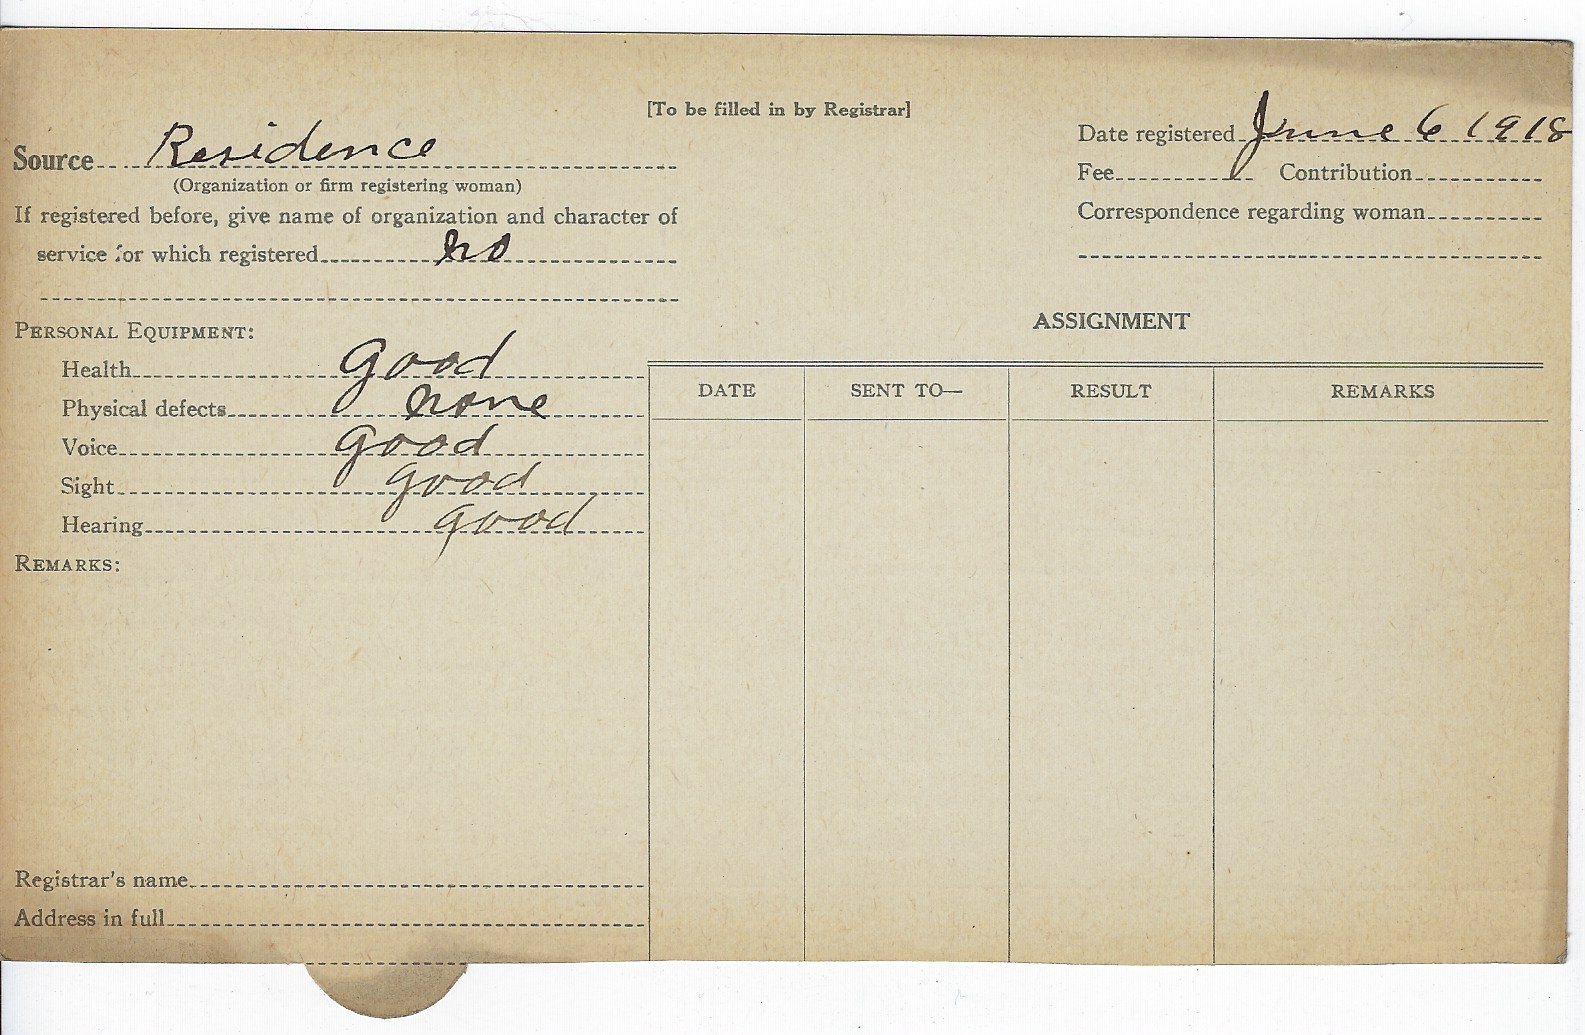 [To be filled in by Registrar]
Source Residence
(Organization or firm registering woman)
If registered before, give name of organization and character of
service for which registered no
Date registered June 6 1918
Fee Contribution
Correspondence regarding woman
PERSONAL EQUIPMENT:
Health good
Physical defects none
Voice good
Sight good
Hearing good
REMARKS:
Registrar's name
Address in full
ASSIGNMENT
DATE SENT TO— RESULT REMARKS